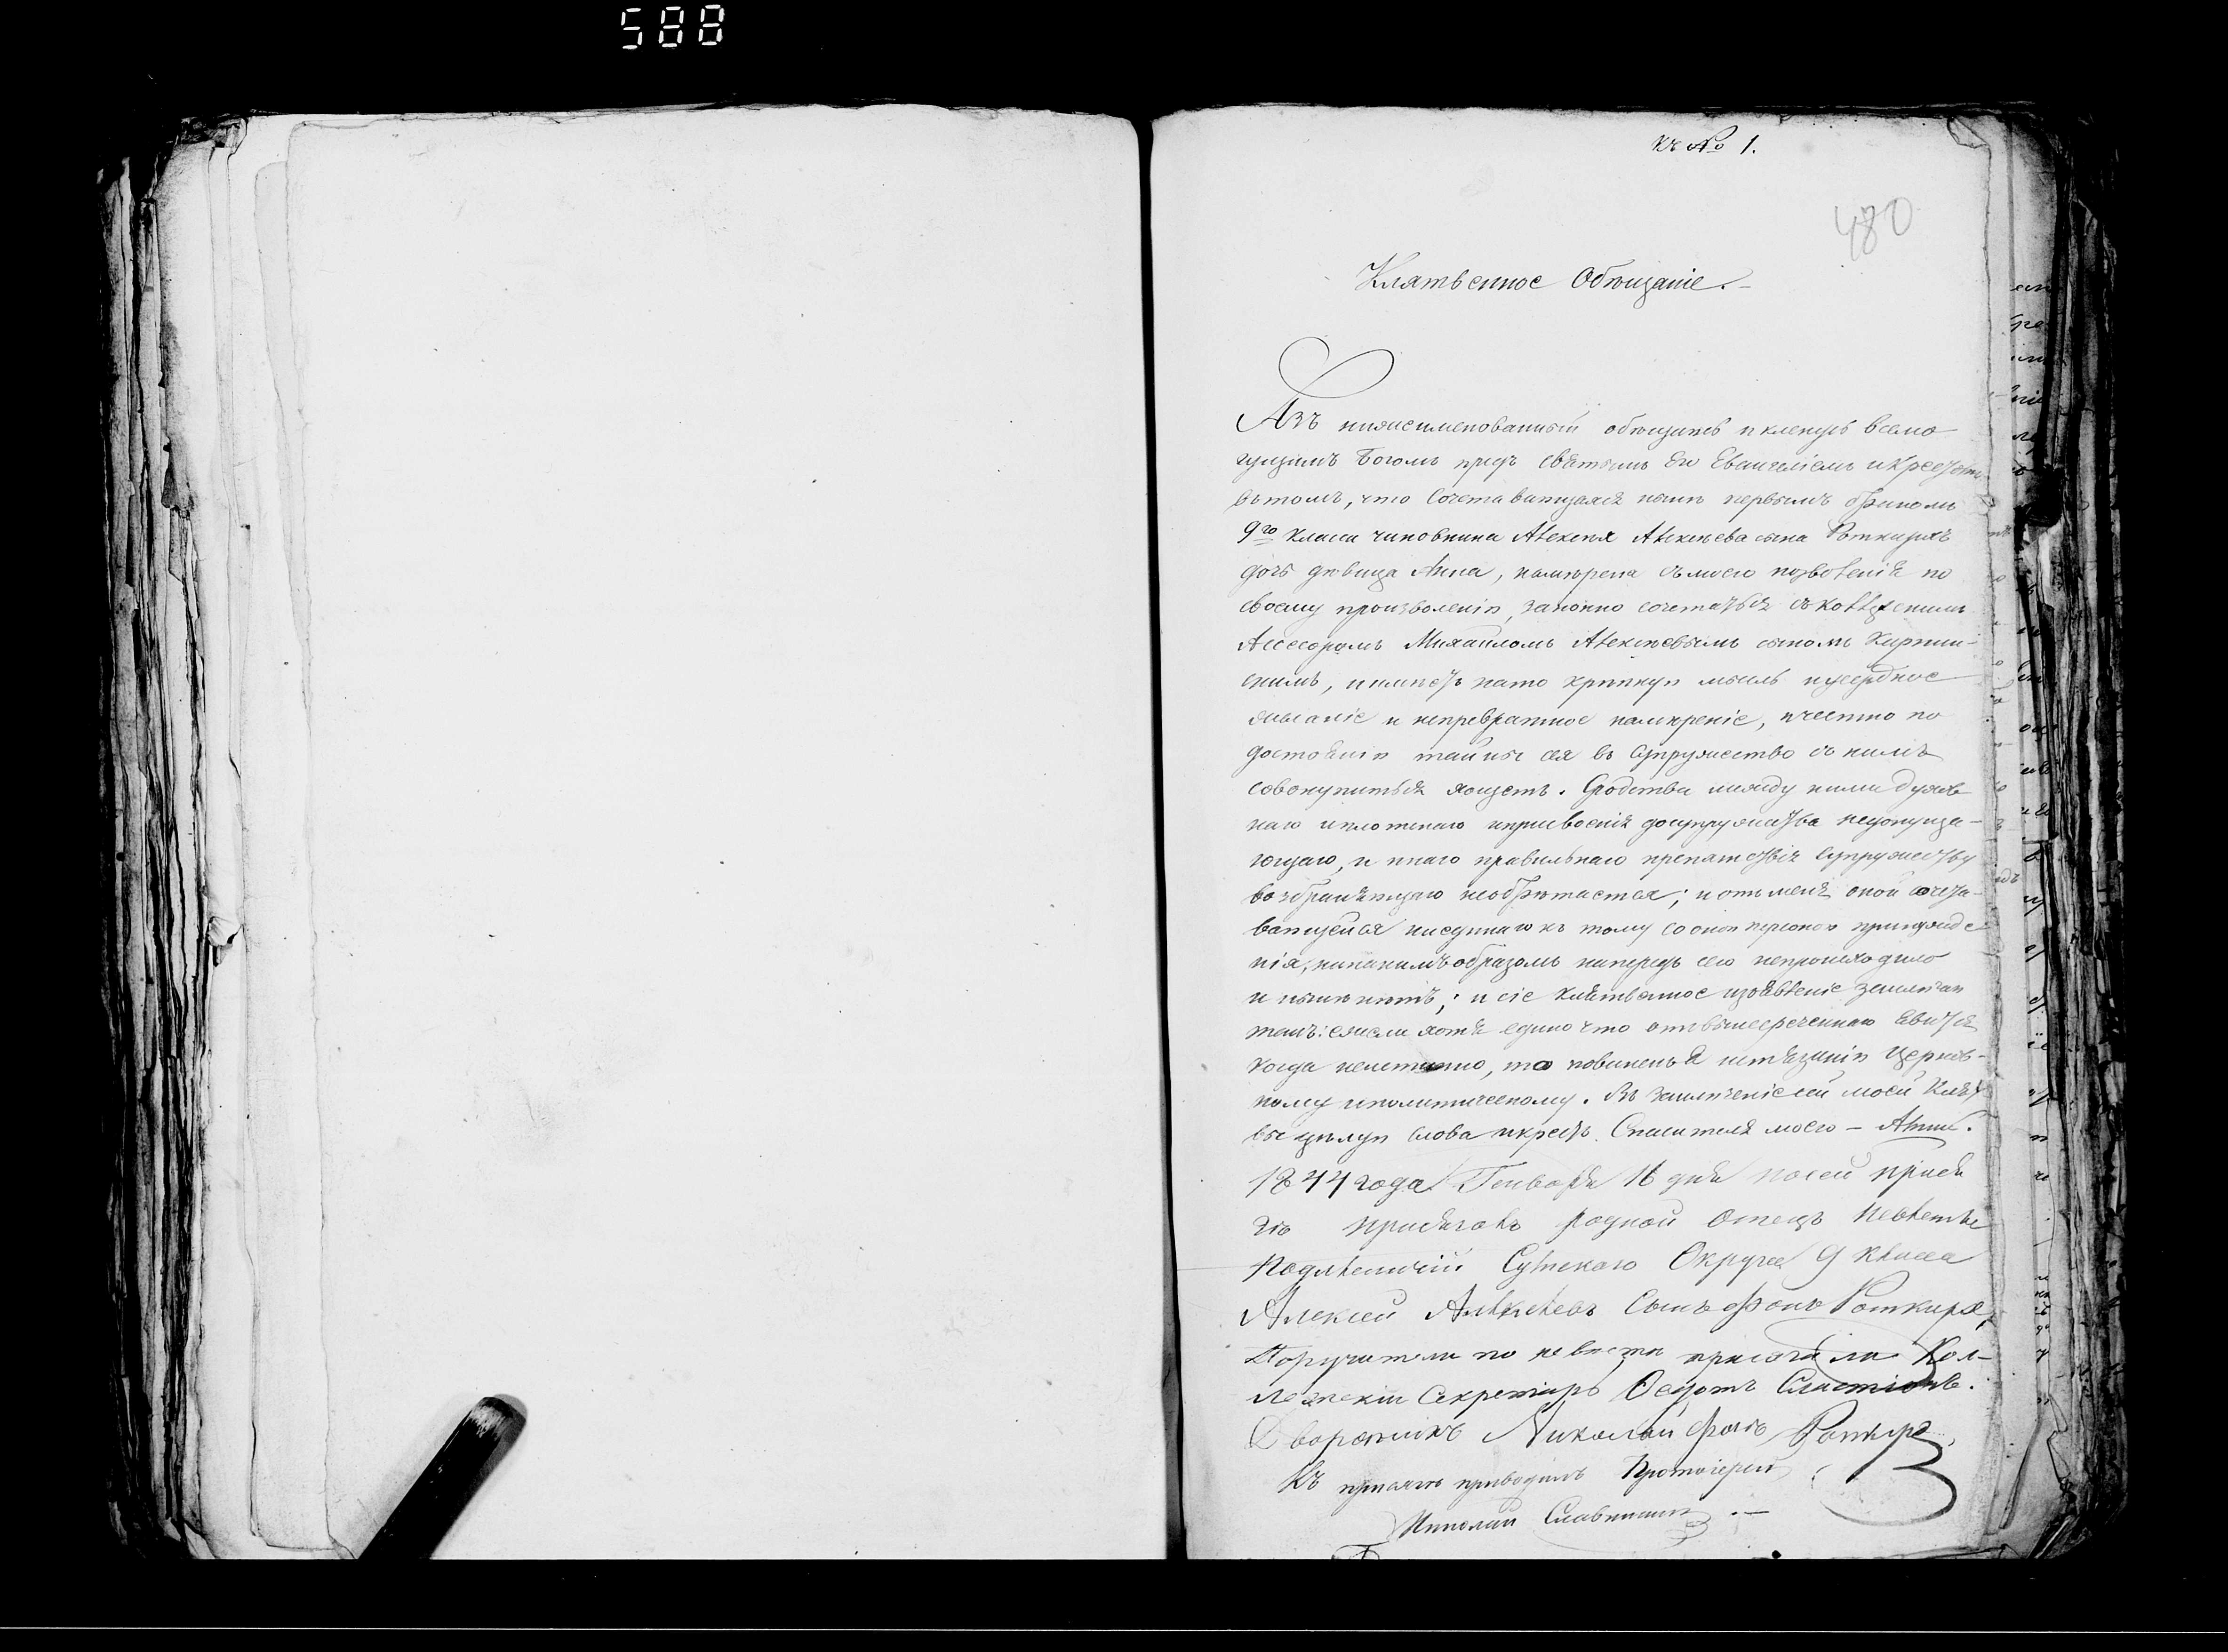 588
къ № 1.
480
Клятвенное Обѣщаніе.
Азъ нижеименованный обѣщаюсь и клянусь всемо-
гущимъ Богомъ предъ святымъ Его Евангеліемъ и Крестомъ
въ томъ, что Сочетавающаяся нынѣ первымъ бракомъ
9го класса чиновника Алексѣя Алексѣева сына Роткирхъ
дочь дѣвица Анна, намѣрена съ моего позволенія по
своему произволенію, законно сочетаться съ Коллежскимъ
Ассесоромъ Михаиломъ Алексѣевымъ сыномъ
скимъ, и имѣетъ на то крѣпкую мысль и усердное
желаніе и непревратное намѣреніе, и честно по
достоянію тайны сея въ Супружество съ нимъ
совокупиться хощетъ. Сродства между ними духов-
наго и плотскаго и присвоенія до супружества недопуща-
ющаго, и инаго правильнаго препятствія Супружеству
возбраняющаго необрѣтается; и отъ меня оной сочета-
вающейся ниединаго къ тому со оною персоною принужде-
нія, никакимъ образомъ напередъ сего непроисходило
и нынѣ нѣтъ; и сіе Клятвенное изъявленіе заключаю
такъ: ежели хотя едино что отъ вышереченнаго явится
когда неистинно, то повиненъ я истязанію Церков-
ному и политическому. Въ заключеніе сей моей Клят-
вы цѣлую слова и крестъ Спасителя моего – Аминь.
1844 года Генваря 16 дня по сей прися
гѣ присягалъ родной Отецъ Невѣсты
Округа 9 класса
Алексей Алексѣевъ Сынъ фонъ Роткирхъ,
Поручители по невѣсте присягали Кол-
лежскій Секретарь Ѳедотъ
Дворянинъ Николай фонъ Роткирхъ
Къ присягѣ приводилъ Протоіерей
Николай